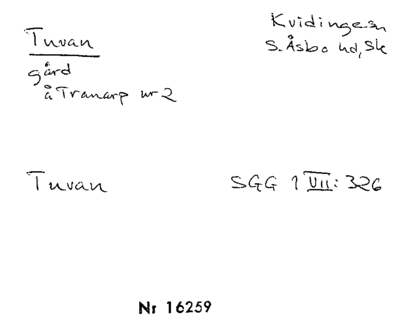 Tuvan
Kvidinge sn
S. Åsbo hd, Sk
gård
å Tranarp nr 2
Tuvan
SGG 1 VII: 326
Nr 16259